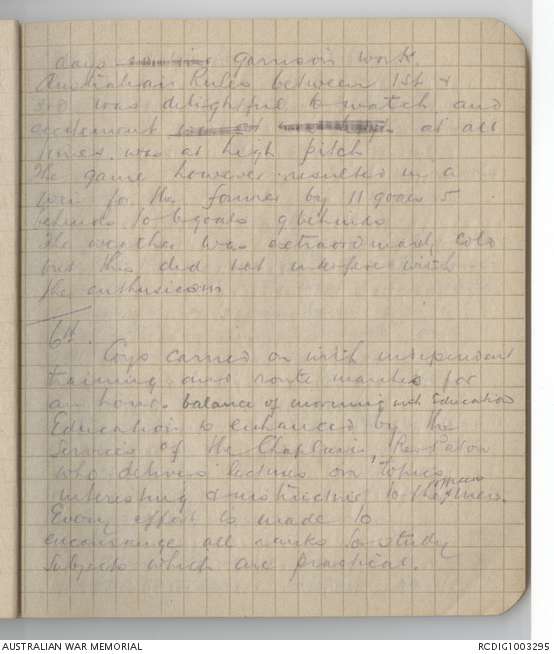 days garrison work.
Australian Rules between 1st &
3rd was delightful to watch and
excitement at all
times was at high pitch
The game however resulted in a
win for the former by 11 goals 5
behinds to 6 goals 9 behinds
The weather was extraordinarily cold
but this did not interfere with
the enthusiasm
6th.
Coys carried on with independent
training and route marches for
an hour. balance of morning with Education
Education is enhanced by the
services of the Chaplain, Rev Paton
who delivers lectures on topics
interesting & instructive to the officers & men.
Every effort is made to
encourage all ranks to study
subjects which are practical.
AUSTRALIAN WAR MEMORIAL
RCDIG1003295